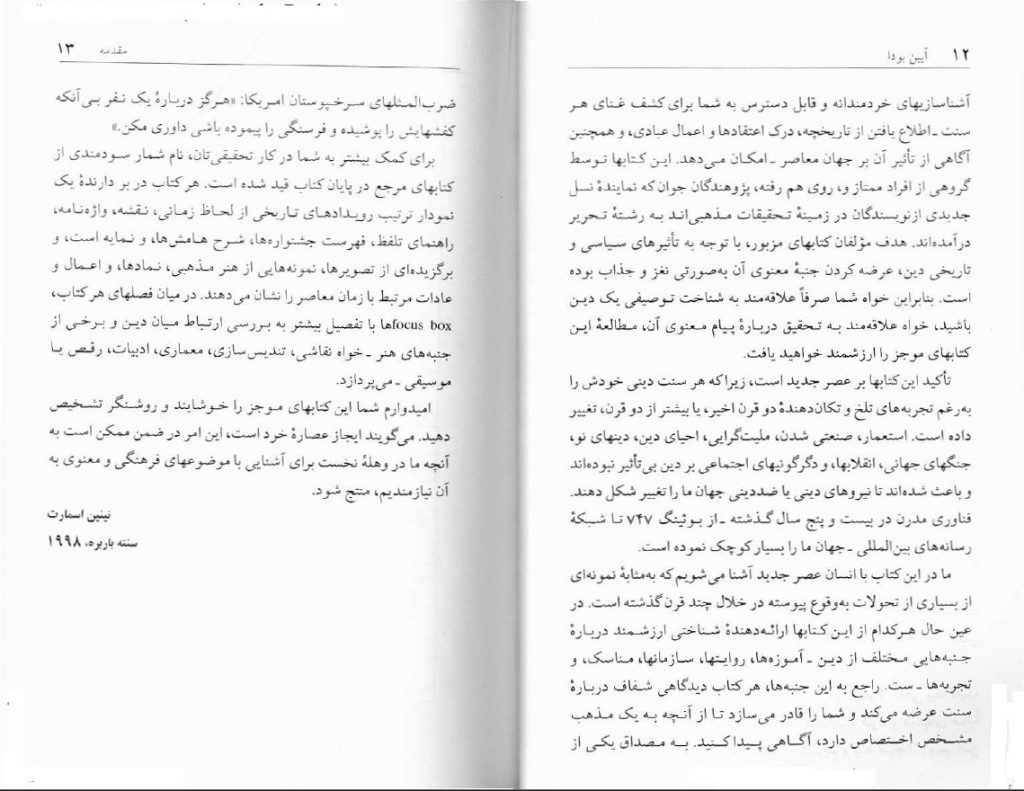 ۱۲ آیین بودا
آشناسازیهای خردمندانه و قابل دسترس به شما برای کشف غنای هر
سنت ـ اطلاع یافتن از تاریخچه، درک اعتقادها و اعمال عبادی، و همچنین
آگاهی از تأثیر آن بر جهان معاصر ـ امکان می‌دهد. این کتابها توسط
گروهی از افراد ممتاز و، روی هم رفته، پژوهندگان جوان که نمایندۀ نسل
جدیدی ازنویسندگان در زمینۀ تحقیقات مذهبی‌اند به رشتۀ تحریر
درآمده‌اند. هدف مؤلفان کتابهای مزبور، با توجه به تأثیرهای سیاسی و
تاریخی دین، عرضه کردن جنبۀ معنوی آن به‌صورتی نغز و جذاب بوده
است. بنابراین خواه شما صرفاً علاقه‌مند به شناخت توصیفی یک دین
باشید، خواه علاقه‌مند به تحقیق دربارۀ پیام معنوی آن، مطالعۀ این
کتابهای موجز را ارزشمند خواهید یافت.
تأکید این کتابها بر عصر جدید است، زیرا که هر سنت دینی خودش را
به‌رغم تجربه‌های تلخ و تکان‌دهندۀ دو قرن اخیر، یا بیشتر از دو قرن، تغییر
داده است. استعمار، صنعتی شدن، ملیت‌گرایی، احیای دین، دینهای نو،
جنگهای جهانی، انقلابها، و دگرگونیهای اجتماعی بر دین بی‌تأثیر نبوده‌اند
و باعث شده‌اند تا نیروهای دینی یا ضددینی جهان ما را تغییر شکل دهند.
فناوری مدرن در بیست و پنج سال گذشته ـ از بوئینگ ۷۴۷ تا شبکۀ
رسانه‌های بین‌المللی ـ جهان ما را بسیار کوچک نموده است.
ما در این کتاب با انسان عصر جدید آشنا می‌شویم که به‌مثابۀ نمونه‌ای
از بسیاری از تحولات به‌وقوع پیوسته در خلال چند قرن گذشته است. در
عین حال هرکدام از این کتابها ارائه‌دهندۀ شناختی ارزشمند دربارۀ
جنبه‌هایی مختلف از دین ـ آموزه‌ها، روایتها، سازمانها، مناسک، و
تجربه‌ها ـ ست. راجع به این جنبه‌ها، هر کتاب دیدگاهی شفاف دربارۀ
سنت عرضه می‌کند و شما را قادر می‌سازد تا از آنچه به یک مذهب
مشخص اختصاص دارد، آگاهی پیدا کنید. به مصداق یکی از
مقدمه ۱۳
ضرب‌المثلهای سرخپوستان امریکا: «هرگز دربارۀ یک نفر بی‌آنکه
کفشهایش را پوشیده و فرسنگی را پیموده باشی داوری مکن.»
برای کمک بیشتر به شما در کار تحقیقی‌تان، نام شمار سودمندی از
کتابهای مرجع در پایان کتاب قید شده است. هر کتاب در بر دارندۀ یک
نمودار ترتیب رویدادهای تاریخی از لحاظ زمانی، نقشه، واژه‌نامه،
راهنمای تلفظ، فهرست جشنواره‌ها، شرح هامش‌ها، و نمایه است، و
برگزیده‌ای از تصویرها، نمونه‌هایی از هنر مذهبی، نمادها، و اعمال و
عادات مرتبط با زمان معاصر را نشان می‌دهند. در میان فصلهای هر کتاب،
focus boxها با تفصیل بیشتر به بررسی ارتباط میان دین و برخی از
جنبه‌های هنر ـ خواه نقاشی، تندیس‌سازی، معماری، ادبیات، رقص یا
موسیقی ـ می‌پردازد.
امیدوارم شما این کتابهای موجز را خوشایند و روشنگر تشخیص
دهید. می‌گویند ایجاز عصارۀ خرد است، این امر در ضمن ممکن است به
آنچه ما در وهلۀ نخست برای آشنایی با موضوعهای فرهنگی و معنوی به
آن نیازمندیم، منتج شود.
نینین اسمارت
سنته باربره، ۱۹۹۸